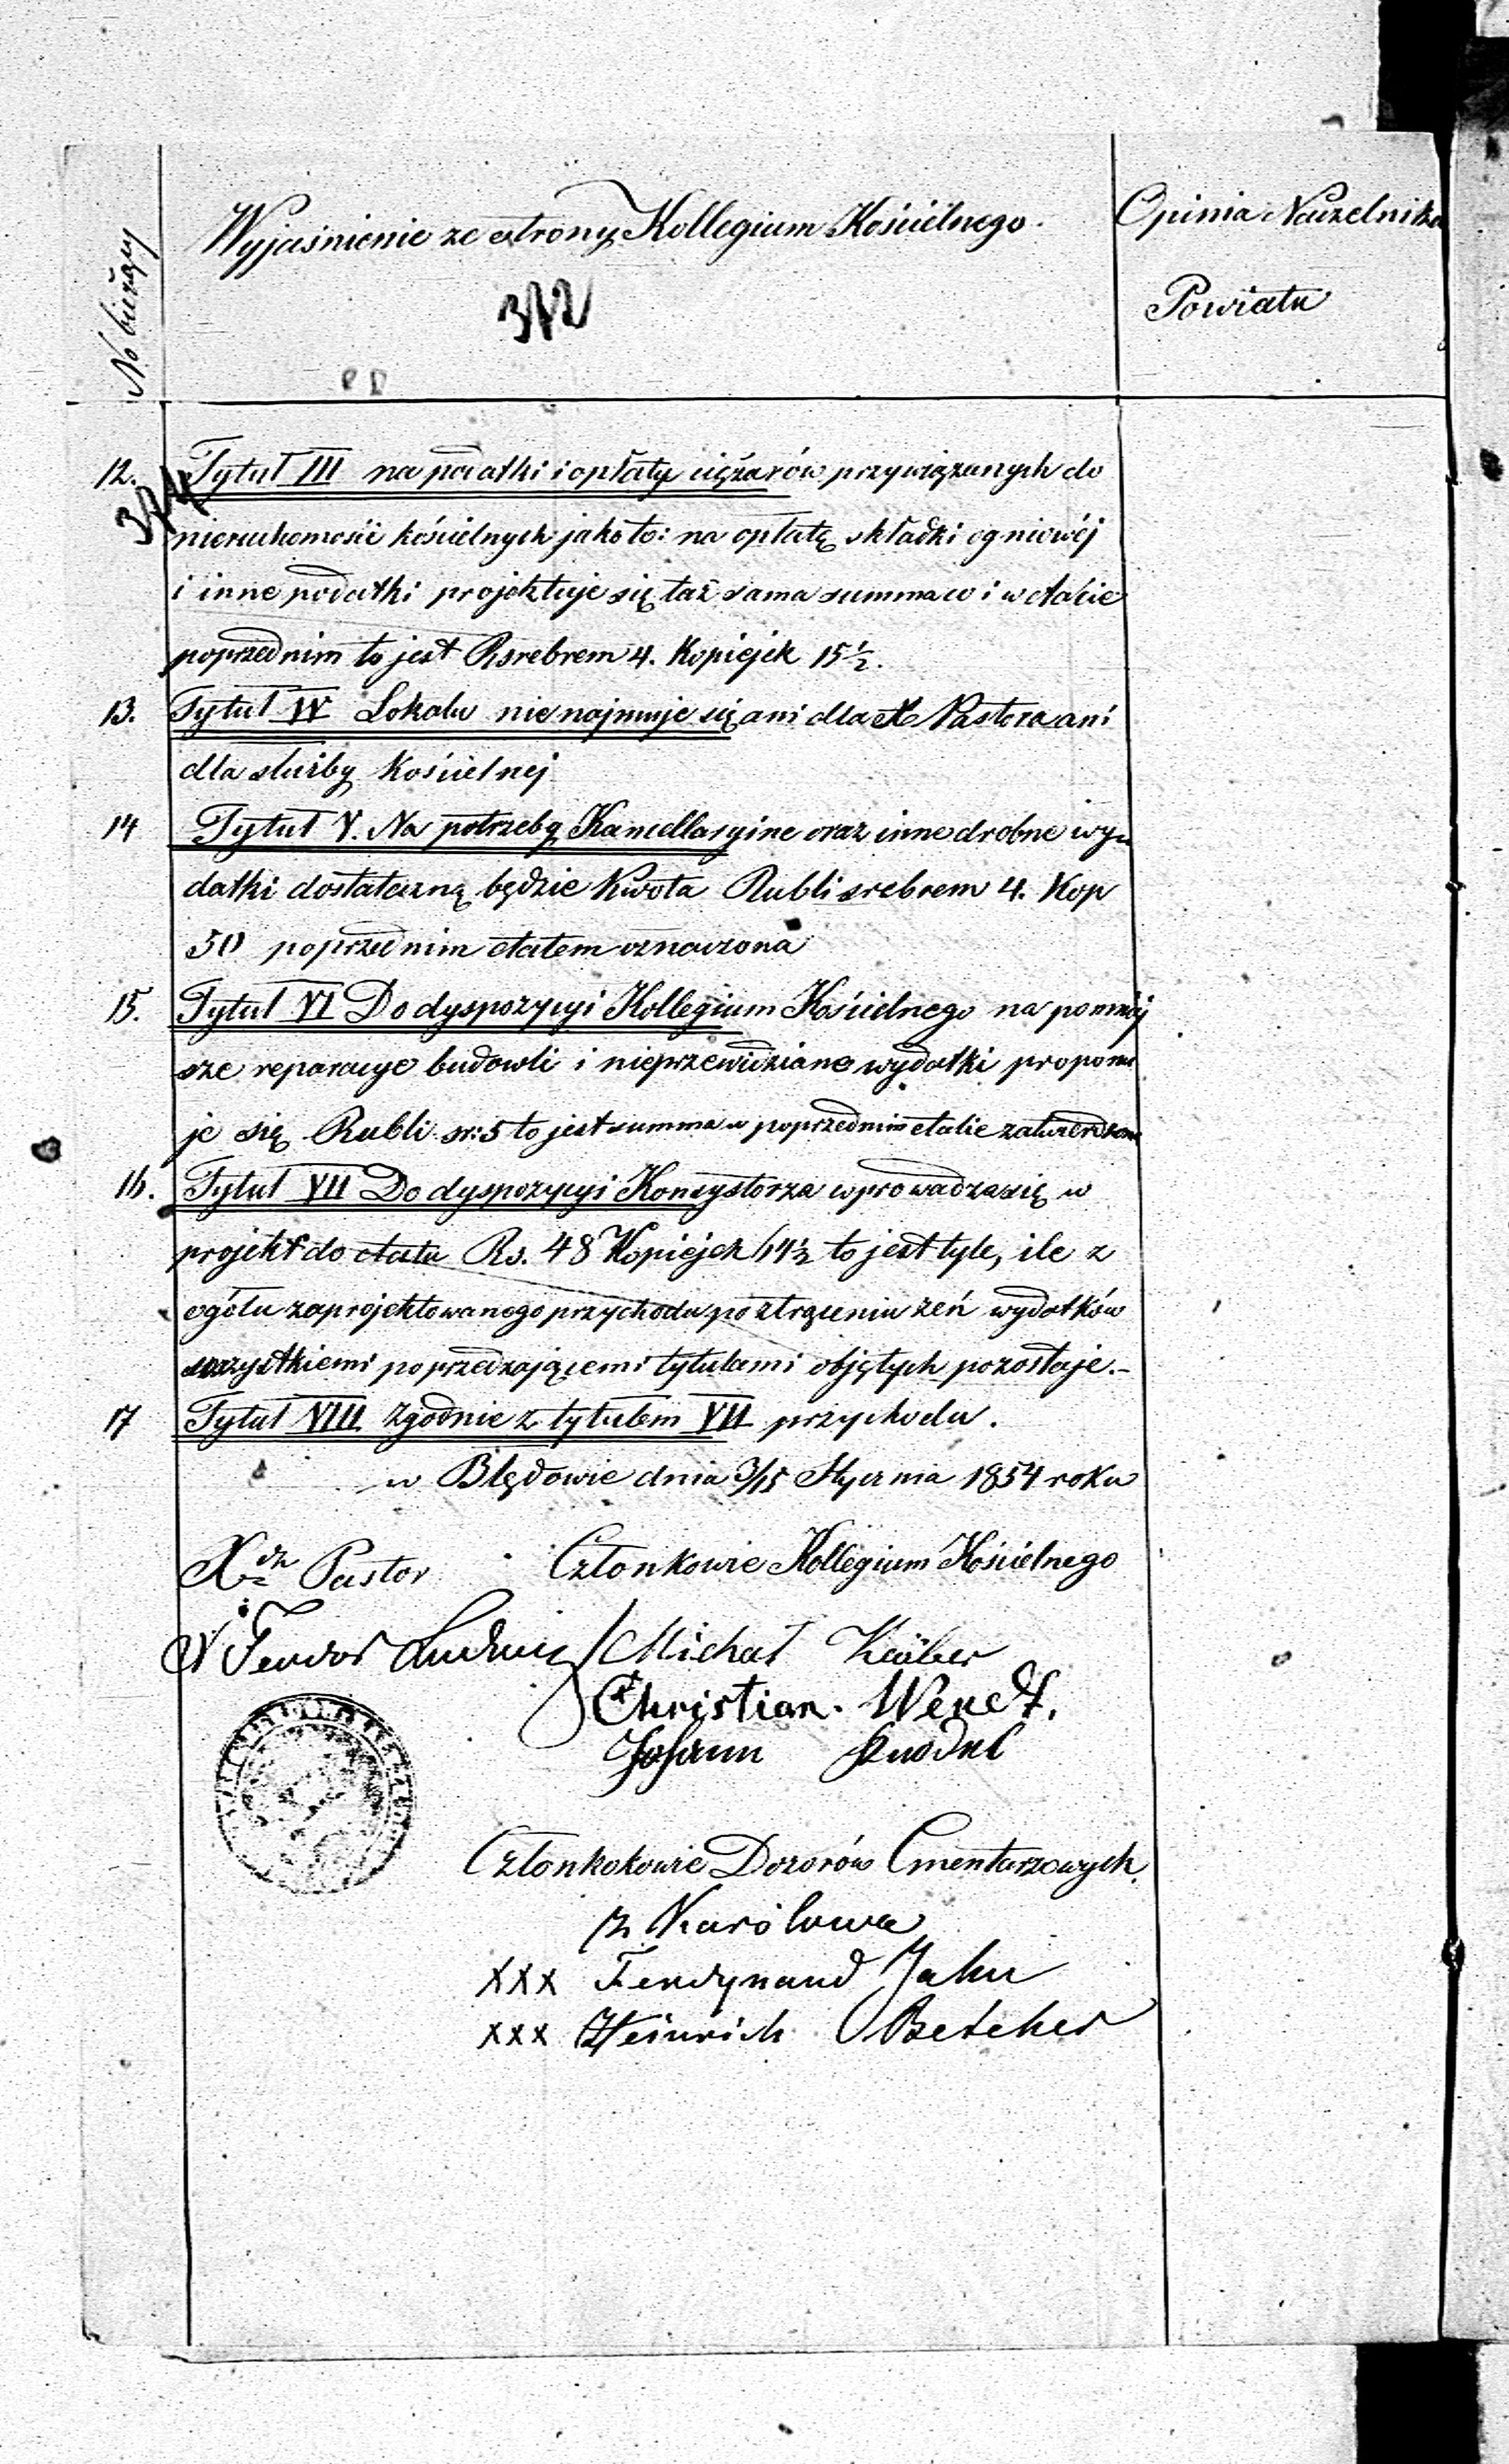 No bieżący
Wyjaśnienie ze strony Kollegium Kościelnego.
Opinia Naczelnika
Powiatu
312
12. Tytuł III na podatki i opłaty ciężarów przywiązanych do
nieruchomości kościelnych jako to: na opłatę składki ogniowéj
i inne podatki projektuje się taż sama summa co i w etacie
poprzednim to jest Rsrebrem 4. Kopiejek 15½.
13. Tytuł IV Lokalu nie najmuje się ani dla X Pastora ani
dla służby Kościelnej
14 Tytuł V. Na potrzeby Kancellaryine oraz inne drobne wy„
datki dostateczną będzie Kwota Rubli srebrem 4. Kop
50 poprzednim etatem oznaczona
15. Tytuł VI Do dyspozycyi Kollegium Kościelnego na pomniej
sze reparacye budowli i nieprzewidziane wydatki proponu
je się Rubli sr: 5 to jest summa w poprzednim etacie zatwierdzona
16. Tytuł VII Do dyspozycyi Konsystorza wprowadza się w
projekt do etatu Rs. 48 Kopiejek 14½ to jest tyle, ile z
ogółu zaprojektowanego przychodu po strąceniu zeń wydatków
wszystkiemi poprzedzającemi tytułami objętych pozostaje.–
17 Tytuł VIII Zgodnie z tytułem VII przychodu.
w Błędowie dnia 3/15 Stycznia 1854 roku
Xdz Pastor Członkowie Kollegium Kościelnego
Teodor Ludwig Michał
Christian. Wendt.
Johann Knodel
Członkokowie Dozorów Cmentarzowych
z Karolewa
xxx Ferdynand Jahn
xxx Heinrich Betcher